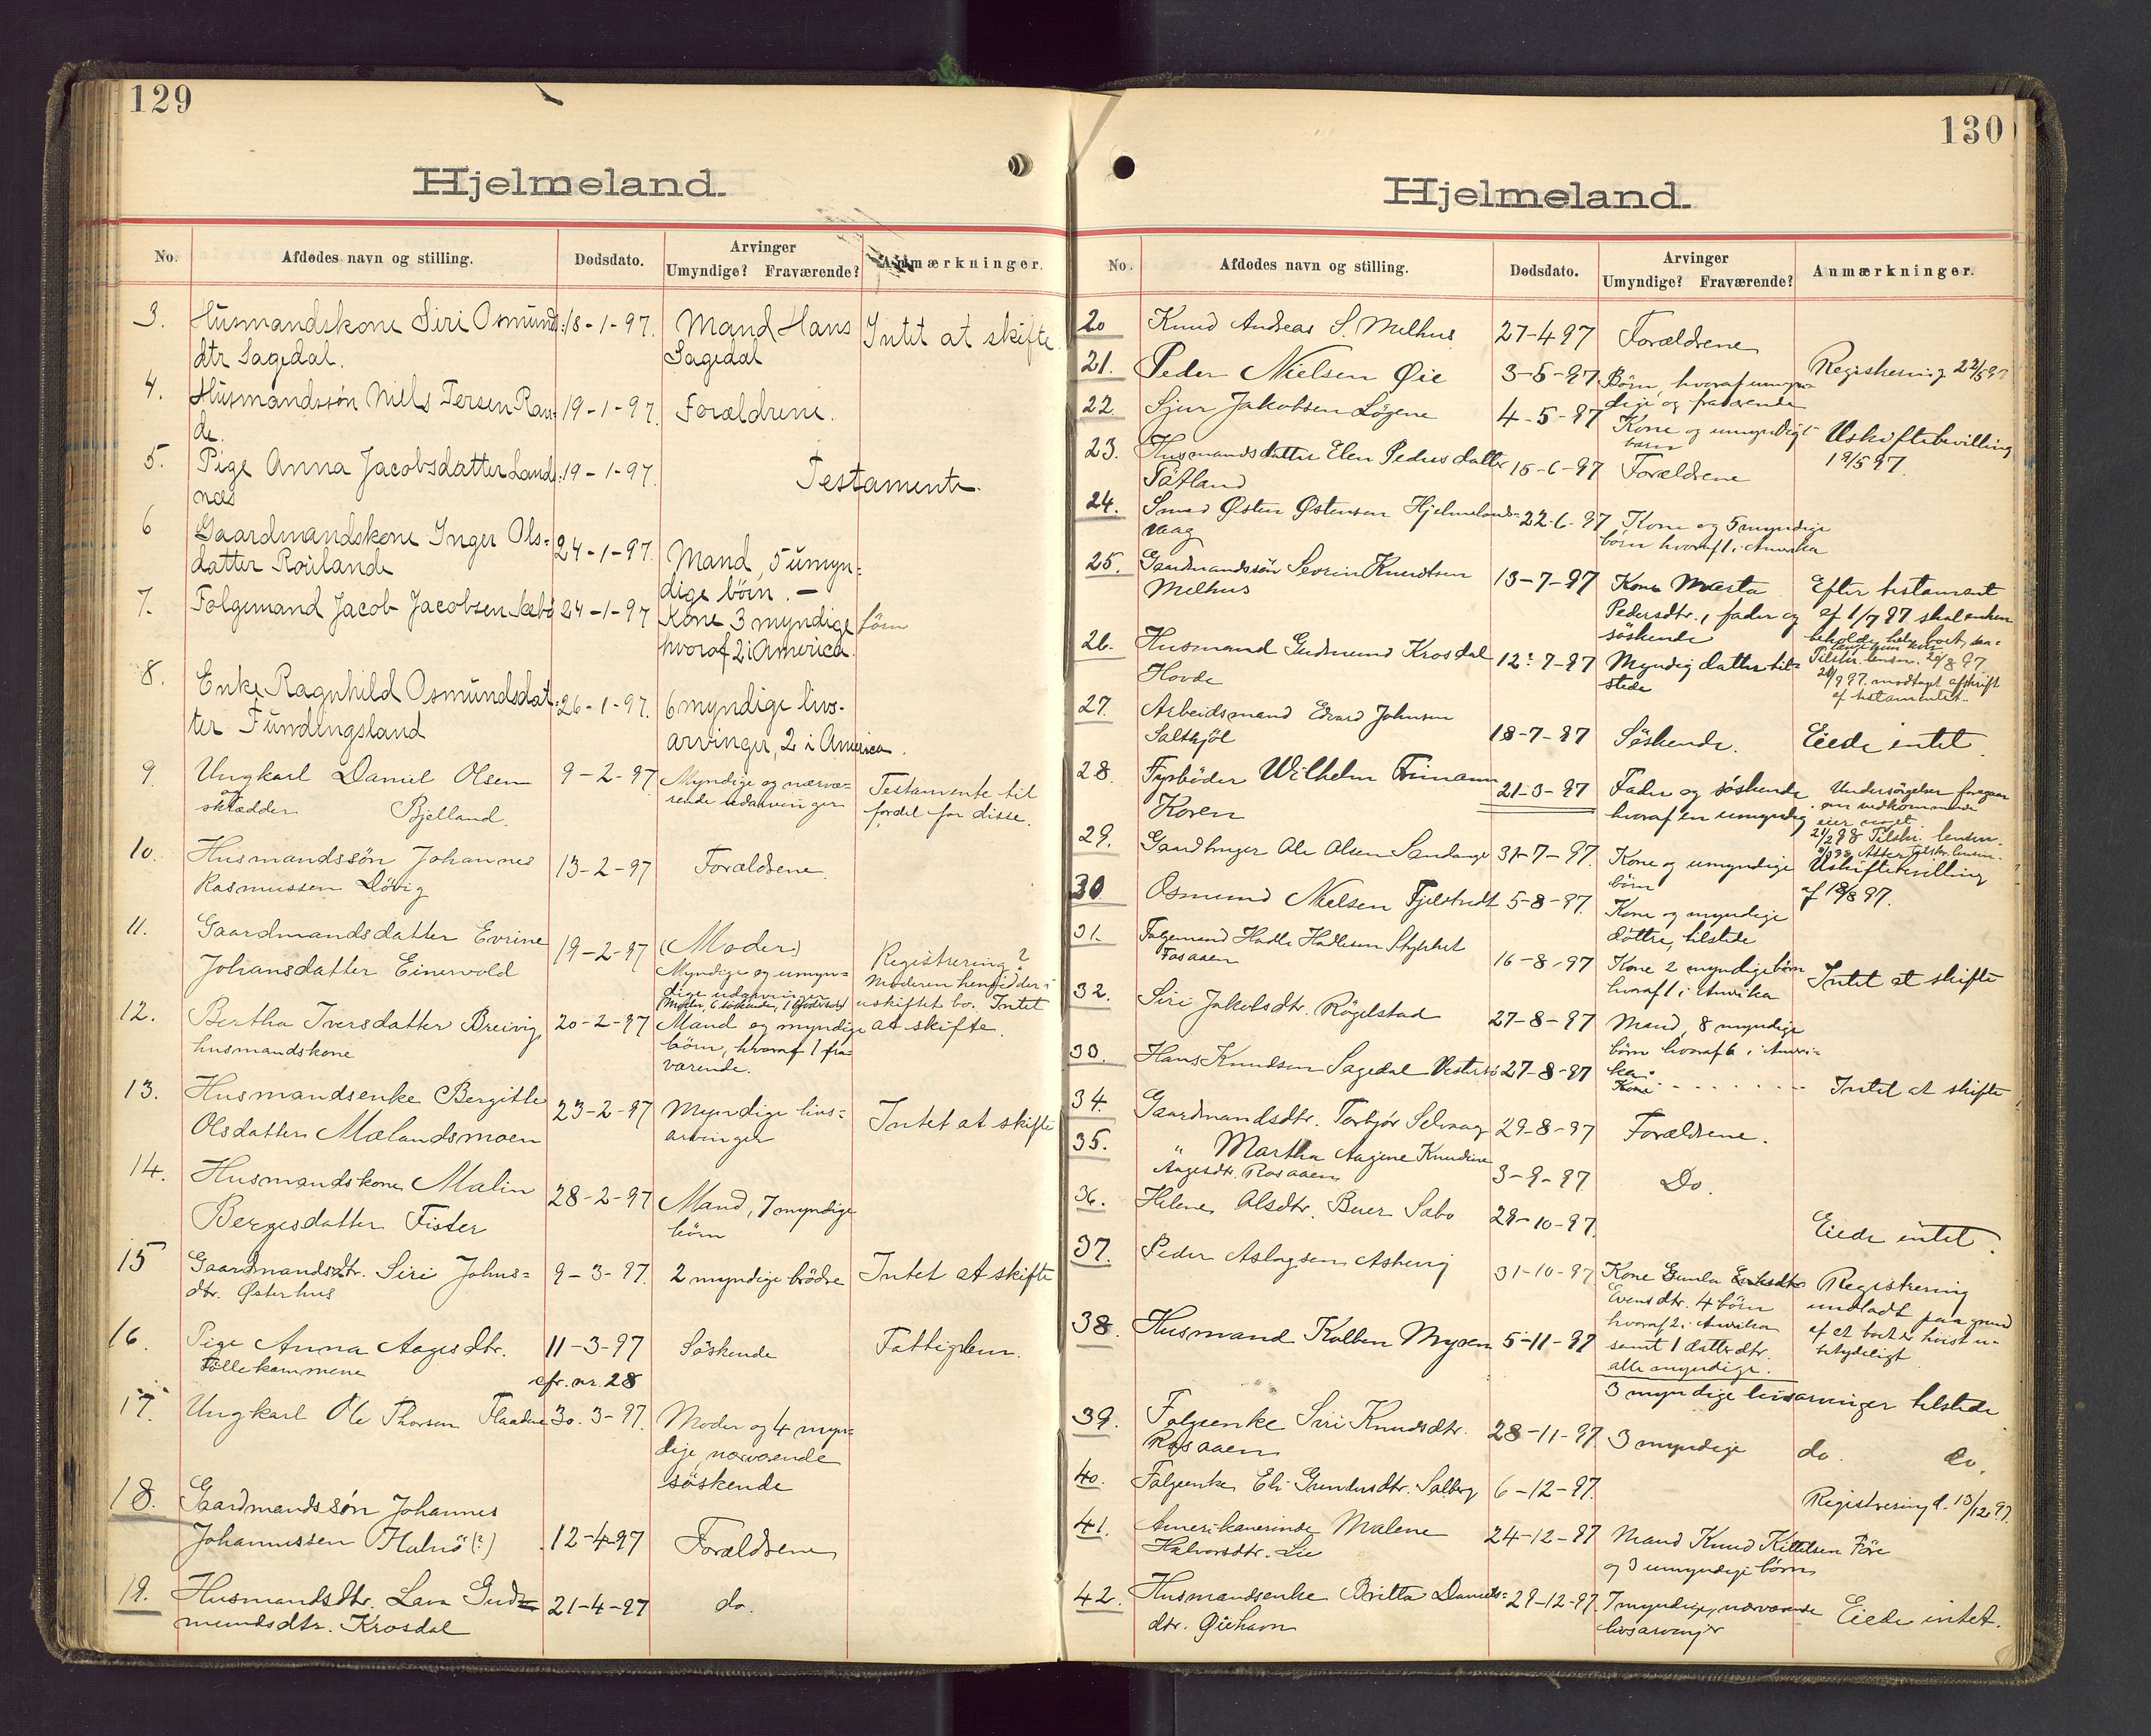 129
Hjelmeland.
No. Afdødes navn og stilling. Dødsdato. Arvinger Umyndige? Fraværende? Anmærkninger.
3. Husmandskone Siri Osmunds- 18-1-97. Mand Hans Intet at skifte
dtr Sagedal. Sagedal
4. Husmandssøn Nils Tersen Ran- 19-1-97. Forældrene.
de.
5. Pige Anna Jacobsdatter Land- 19-1-97. Testamente.
næs
6 Gaardmandskone Inger Ols- 24-1-97. Mand, 5 umyn-
datter Roulande dige börn. —
7. Folgemand Jacob Jacobsen Sæbö 24-1-97 Kone 3 myndige börn
hvoraf 2 i America.
8. Enke Ragnhild Osmundsdat- 26-1-97. 6 myndige livs-
ter Fundingsland arvinger, 2 i America.
9. Ungkarl Daniel Olsen 9-2-97. Myndige og nærvæ- Testamente til
og skrædder Bjelland. rende udarvinger fordel for disse.
10. Husmandssøn Johannes 13-2-97 Forældrene.
Rasmussen Døvig
11. Gaardmandsdatter Evrine 19-2-97 (Moder) Registrering?
Johansdatter Einervold Myndige og umyn- Moderen hensidder i
dige udarvinger uskiftet bo. Intet
(Moder, 6 søskende, at skifte.
12. Bertha Iversdatter Breivig 20-2-97 Mand og myndige
husmandskone börn, hvoraf 1 fra-
værende.
13. Husmandsenke Bergitte 23-2-97 Myndige livs- Intet at skifte
Olsdatter Mælandsmoen arvinger
14. Husmandskone Malin 28-2-97 Mand, 7 myndige
Bergesdatter Fister børn
15 Gaardmandsdtr. Siri Johns- 9-3-97. 2 myndige brødre Intet at skifte
dtr. Østerhus
16. Pige Anna Aagesdtr. 11-3-97 Söskende Fattiglem.
Töllekammene cfr. nr. 28
17. Ungkarl Ole Thorsen 30.3-97. Moder og 4 myn-
dige, nærværende
söskende
18. Gaardmandssön Johannes
Johannessen Halnö(?) 12-4-97 Forældrene
19. Husmandsdtr. Lava Gud- 21-4-97 do.
mundsdtr. Krosdal
130
Hjelmeland.
No. Afdødes navn og stilling. Dødsdato. Arvinger Umyndige? Fraværende? Anmærkninger.
20 Knud Andreas S. Melhus 27-4-97 Forældrene
21. Peder Nielsen Øie 3-5-97 Börn, hvoraf umyn- Registrering 22/5 97
dige og fraværende
22. Sjur Jakobsen Løgene 4-5-97 Kone og umyndigt Uskiftebevilling
barn 19/5 97.
23. Husmandsdatter Elen Pedersdatter 15-6-97 Forældrene
Tøtland
24. Smed Østen Østensen Hjelmelands- 22-6-97 Kone og 5 myndige
vaag börn hvoraf 1 i Amerika
25. Gaardmandssön Sevrin Knudtsen 13-7-97 Kone Marta Efter testament
Melhus Pedersdtr., fader og af 1/7 97 skal enken
söskende beholde hele boet, saa-
længe hun lever.
26. Husmand Gudmund Krosdal 12-7-97 Myndig datter til- Tilskr. lensm. 20/8 97
Hovde stede 28/9 97. modtaget afskrift
af testamentet.
27. Arbeidsmand Edvard Johnsen
Saltkjöl 18-7-97 Söskende. Eiede intet
28. Fyrbøder Wilhelm 21-3-97 Fader og söskende Undersøgelser foregaar
Koren hvoraf en umyndig om vedkommende
eier noget.
21/2 98 Tilskr. lensm.
29. Gaardbruger Ole Olsen Sandanger 31-7-97. Kone og umyndige Uskiftebevilling
börn af 18/8 97.
30 Osmund Nielsen Fjelstedt 5-8-97. Kone og myndige
döttre, tilstede
31. Folgemand Hadle Hadlesen 16-8-97 Kone 2 myndige børn Intet at skifte
hvoraf 1 i Amerika
32. Siri Jakobsdtr. Rögelstad 27-8-97 Mand, 8 myndige
börn hvoraf 6 i Ameri-
ka.
33. Hans Knudsen Sagedal 27-8-97 Kone - - - - - Intet at skifte
34. Gaardmandsdtr. Torbjør Selvaag 29-8-97 Forældrene.
35. " Martha Aagene Knudine 3-9-97 Do.
Aagesdtr. Rosaaen
36. Helene Olsdtr. Buer Sæbo 29-10-97. Eiede intet.
37. Peder Aslagsen Asheivig 31-10-97 Kone Gunla Registrering
Evensdtr. 4 börn undladt paa grund
hvoraf 2 i Amerika af at boet er höist u-
samt 1 datterdtr. betydeligt
alle myndige.
38. Husmand Kolben Myren 5-11-97
3 myndige livsarvinger tilstede
39. Folgeenke Siri Knudsdtr. 28-11-97. 3 myndige do. do.
Rosaaen
40. Folgeenke Eli Gundersdtr. Solberg 6-12-97. Registrering d. 13/12 97.
41. Amerikanerinde Malene 24-12-97 Mand Knud Kittelsen Före
Halvorsdtr. Lie og 3 umyndige børn
42. Husmandsenke Britta Daniels- 29-12-97 7 myndige, nærværende Eiede intet.
dtr. Øiehavn livsarvinger